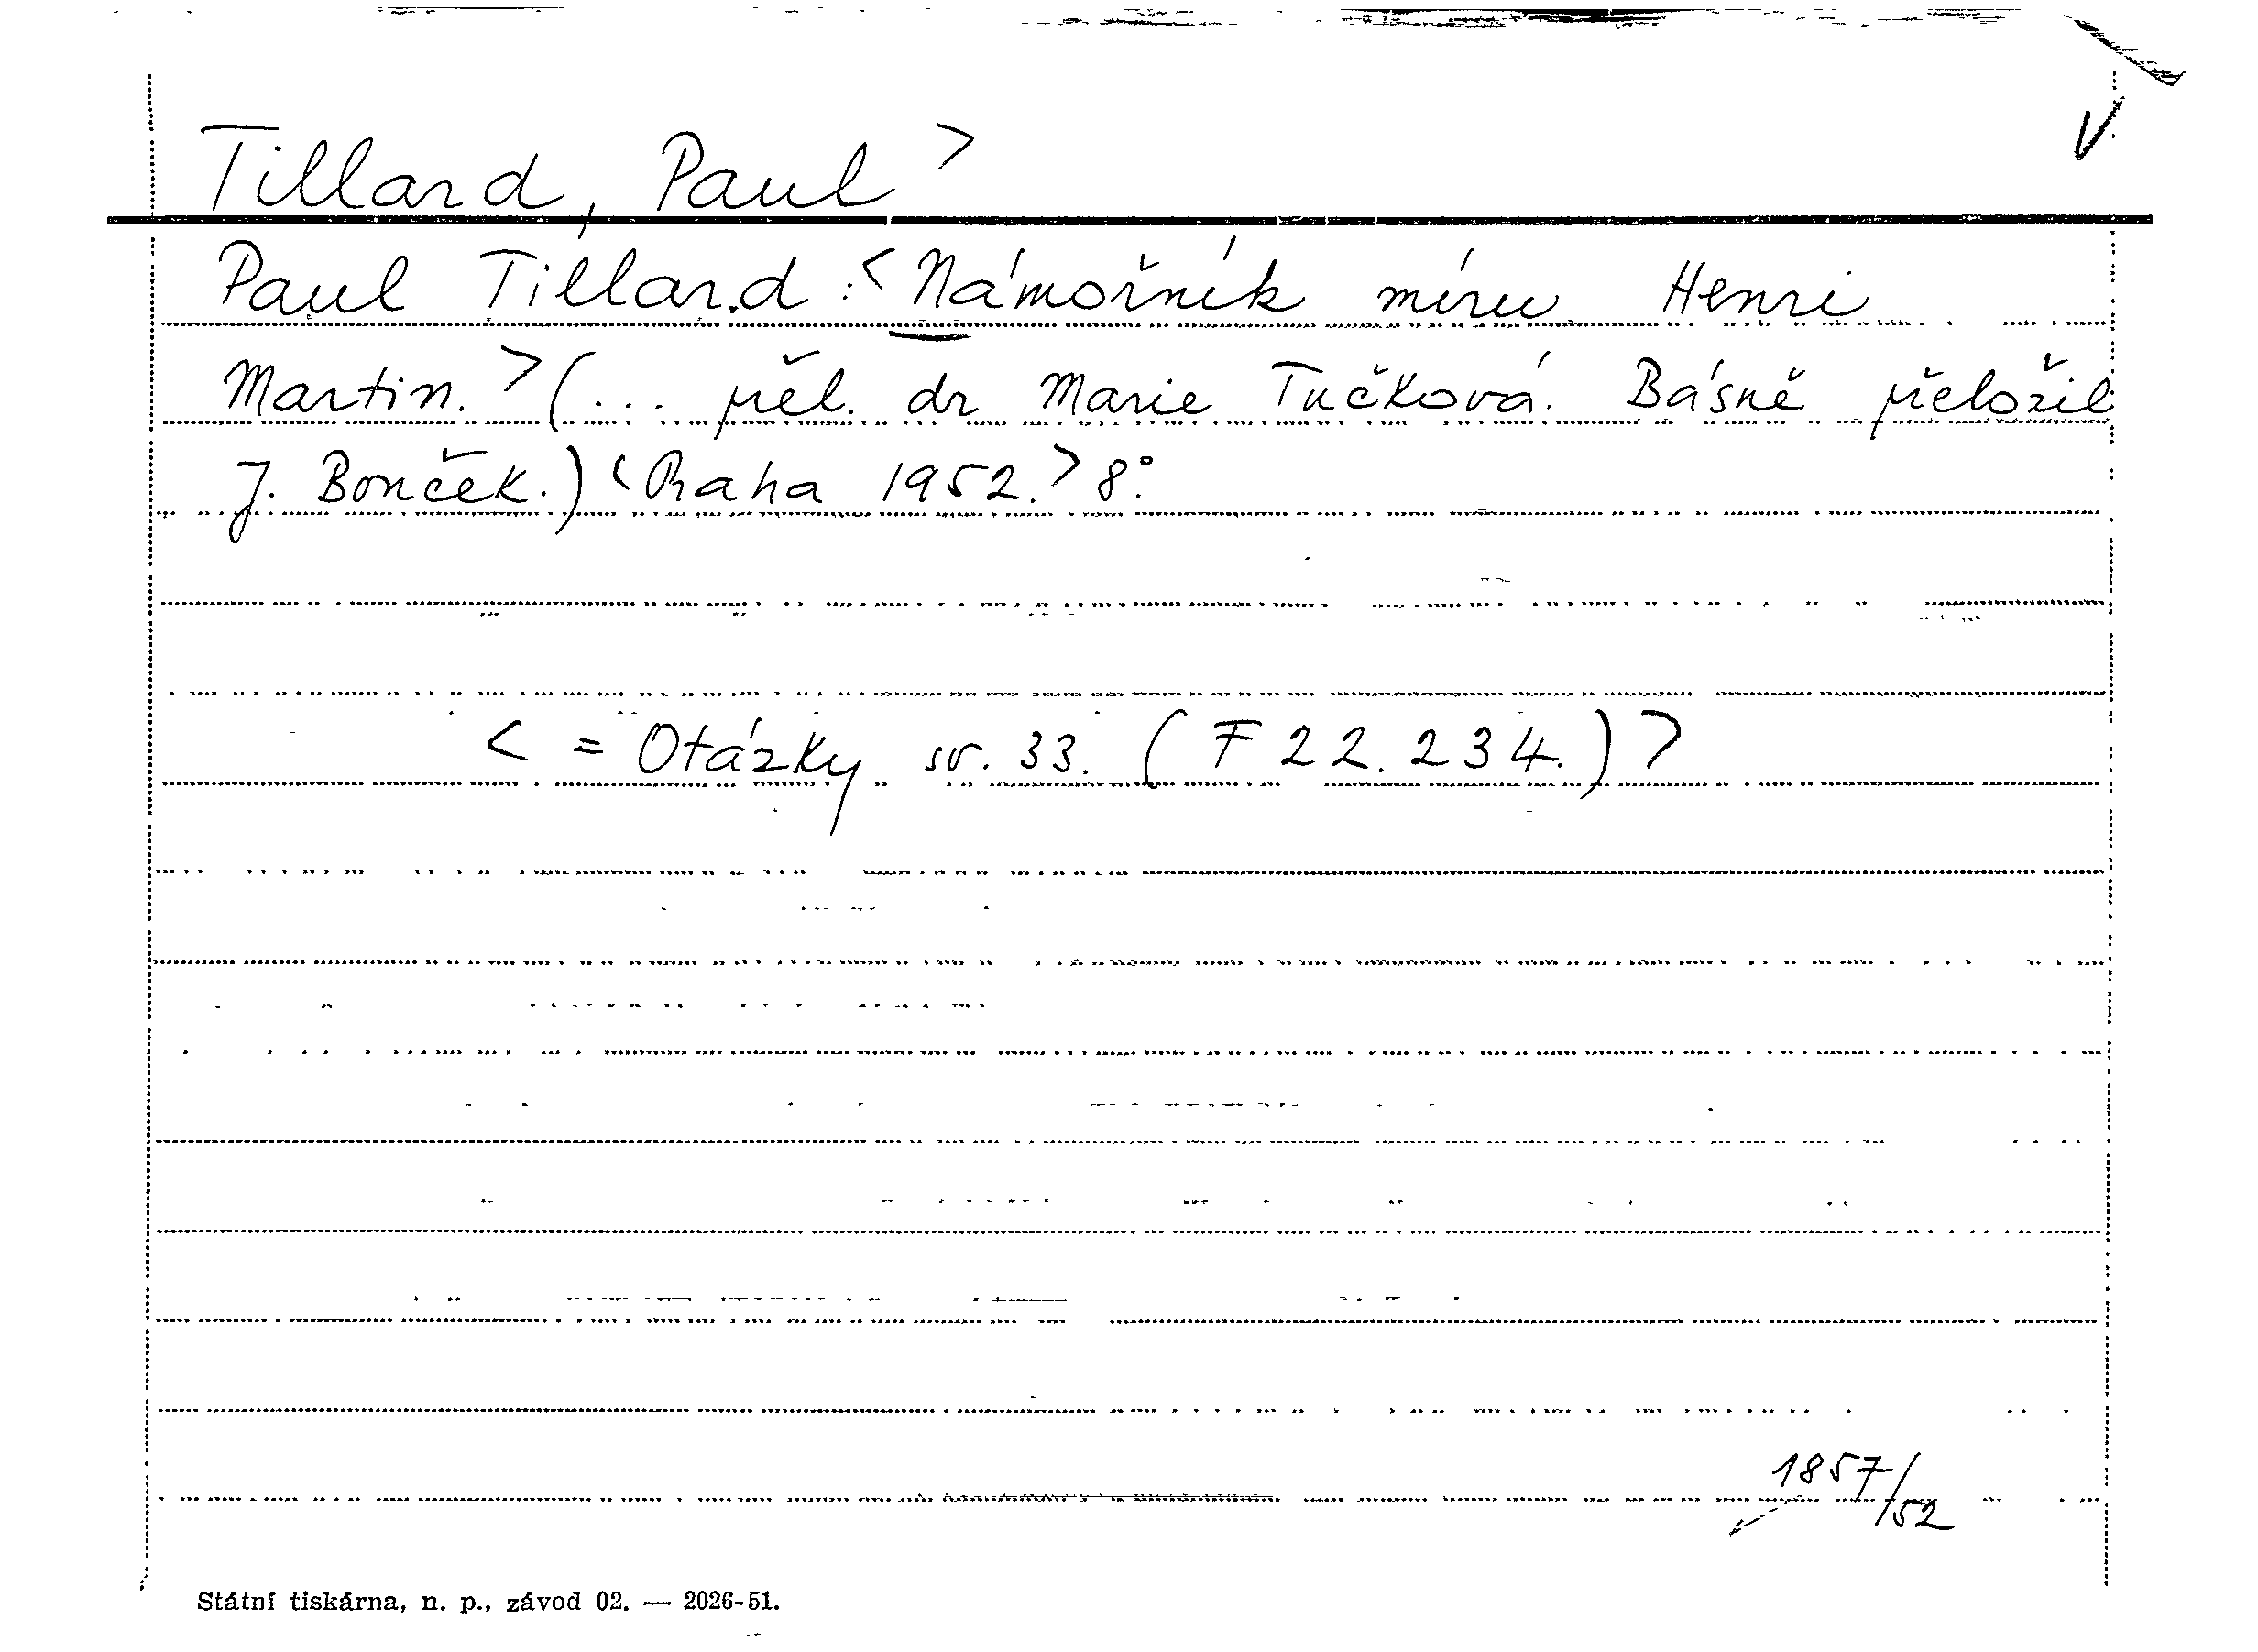 Tillard, Paul >
V
Paul Tillard: <Námořník míru Henri
Martin.> (... přel. dr Marie Tučková. Básně přeložil
J. Bonček.) <Praha 1952.> 8°.
< = Otázky sv. 33. (F 22.234.) >
1857/52
Státní tiskárna, n. p., závod 02. — 2026-51.